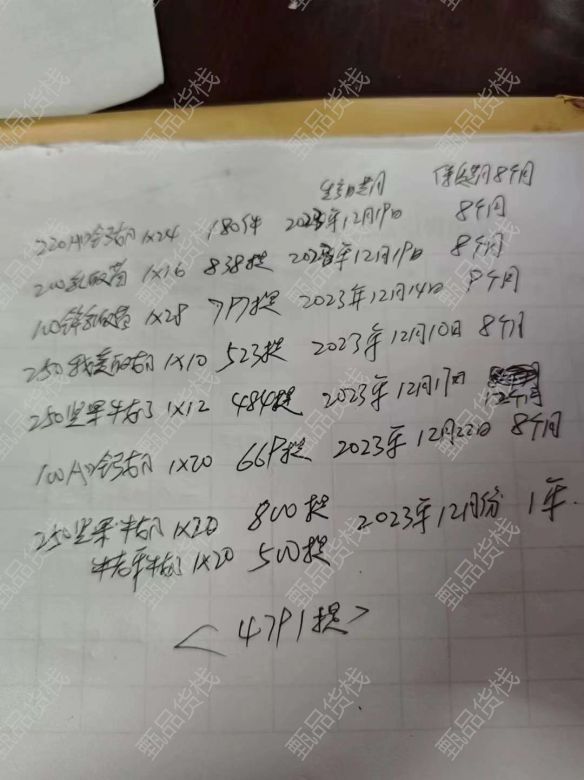 生产日期 保质期8个月
220AD钙奶 1×24 180件 2023年12月19日 8个月
200乳酸菌 1×16 838提 2023年12月19日 8个月
100锌乳酸菌 1×28 797提 2023年12月14日 9个月
250我爱酸奶 1×10 523提 2023年12月10日 8个月
250坚果牛奶 1×12 484提 2023年12月17日 12个月
100AD钙奶 1×20 669提 2023年12月22日 8个月
250坚果牛奶 1×20 800提 2023年12月份 1年.
牛奶 1×20 500提
<4791提>
甄品货栈